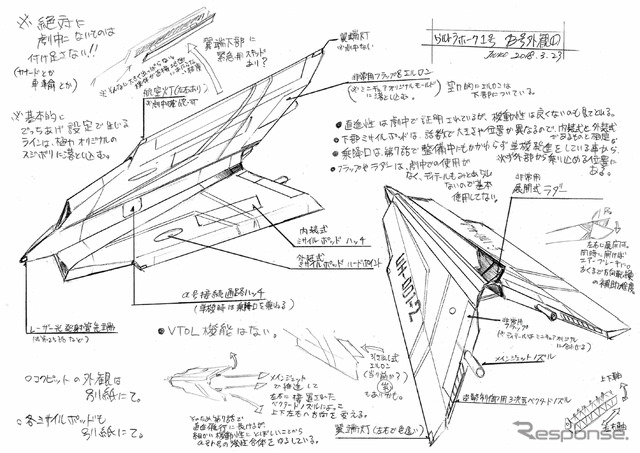 ※ 絶対に
劇中にないものは
付け足さない!!
(カナードとか
車輪とか)
※基本的に
でっちあげ設定で生じる
ラインは、極力オリジナルの
スミボリに落とし込む。
翼端下部に
緊急用スキッド
あり?
翼端灯
航空灯(左右あり)
非常用フラップ&エルロン
空力的にエルロンは
下部についている。
ウルトラホーク1号 β号外観①
2018.3.23
● 直進性は劇中で証明されているが、機動性は良くないのも見てとる。
● 下部ミサイルポッドは、話数で大きさや位置が異なるので、内装式と外装式
があるものと推定。
● 乗降口は、第7話で整備中にもかかわらず単機発進をしている事から、
外部から乗り込める位置に
ある。
● フラップやラダーは、劇中での使用が
なく、ディテールもみとめられ
ないので基本
使用してない。
非常用
展開式ラダー
内装式
ミサイルポッド ハッチ
外装式
ミサイルポッド ハードポイント
α号接続通路ハッチ
(単機時は乗降口を兼ねる)
レーザー光発射管先端
● VTOL機能はない。
非常用
フラップ
メインジェットノズル
翼端灯(左右で色違い)
上下軸
左右軸
メインジェット
で推進して
左右に
ベクタードノズルによって
上下左右へ向きを変える。
○コクピットの外観は
別紙にて。
○各ミサイルポッドも
別紙にて。
Response.